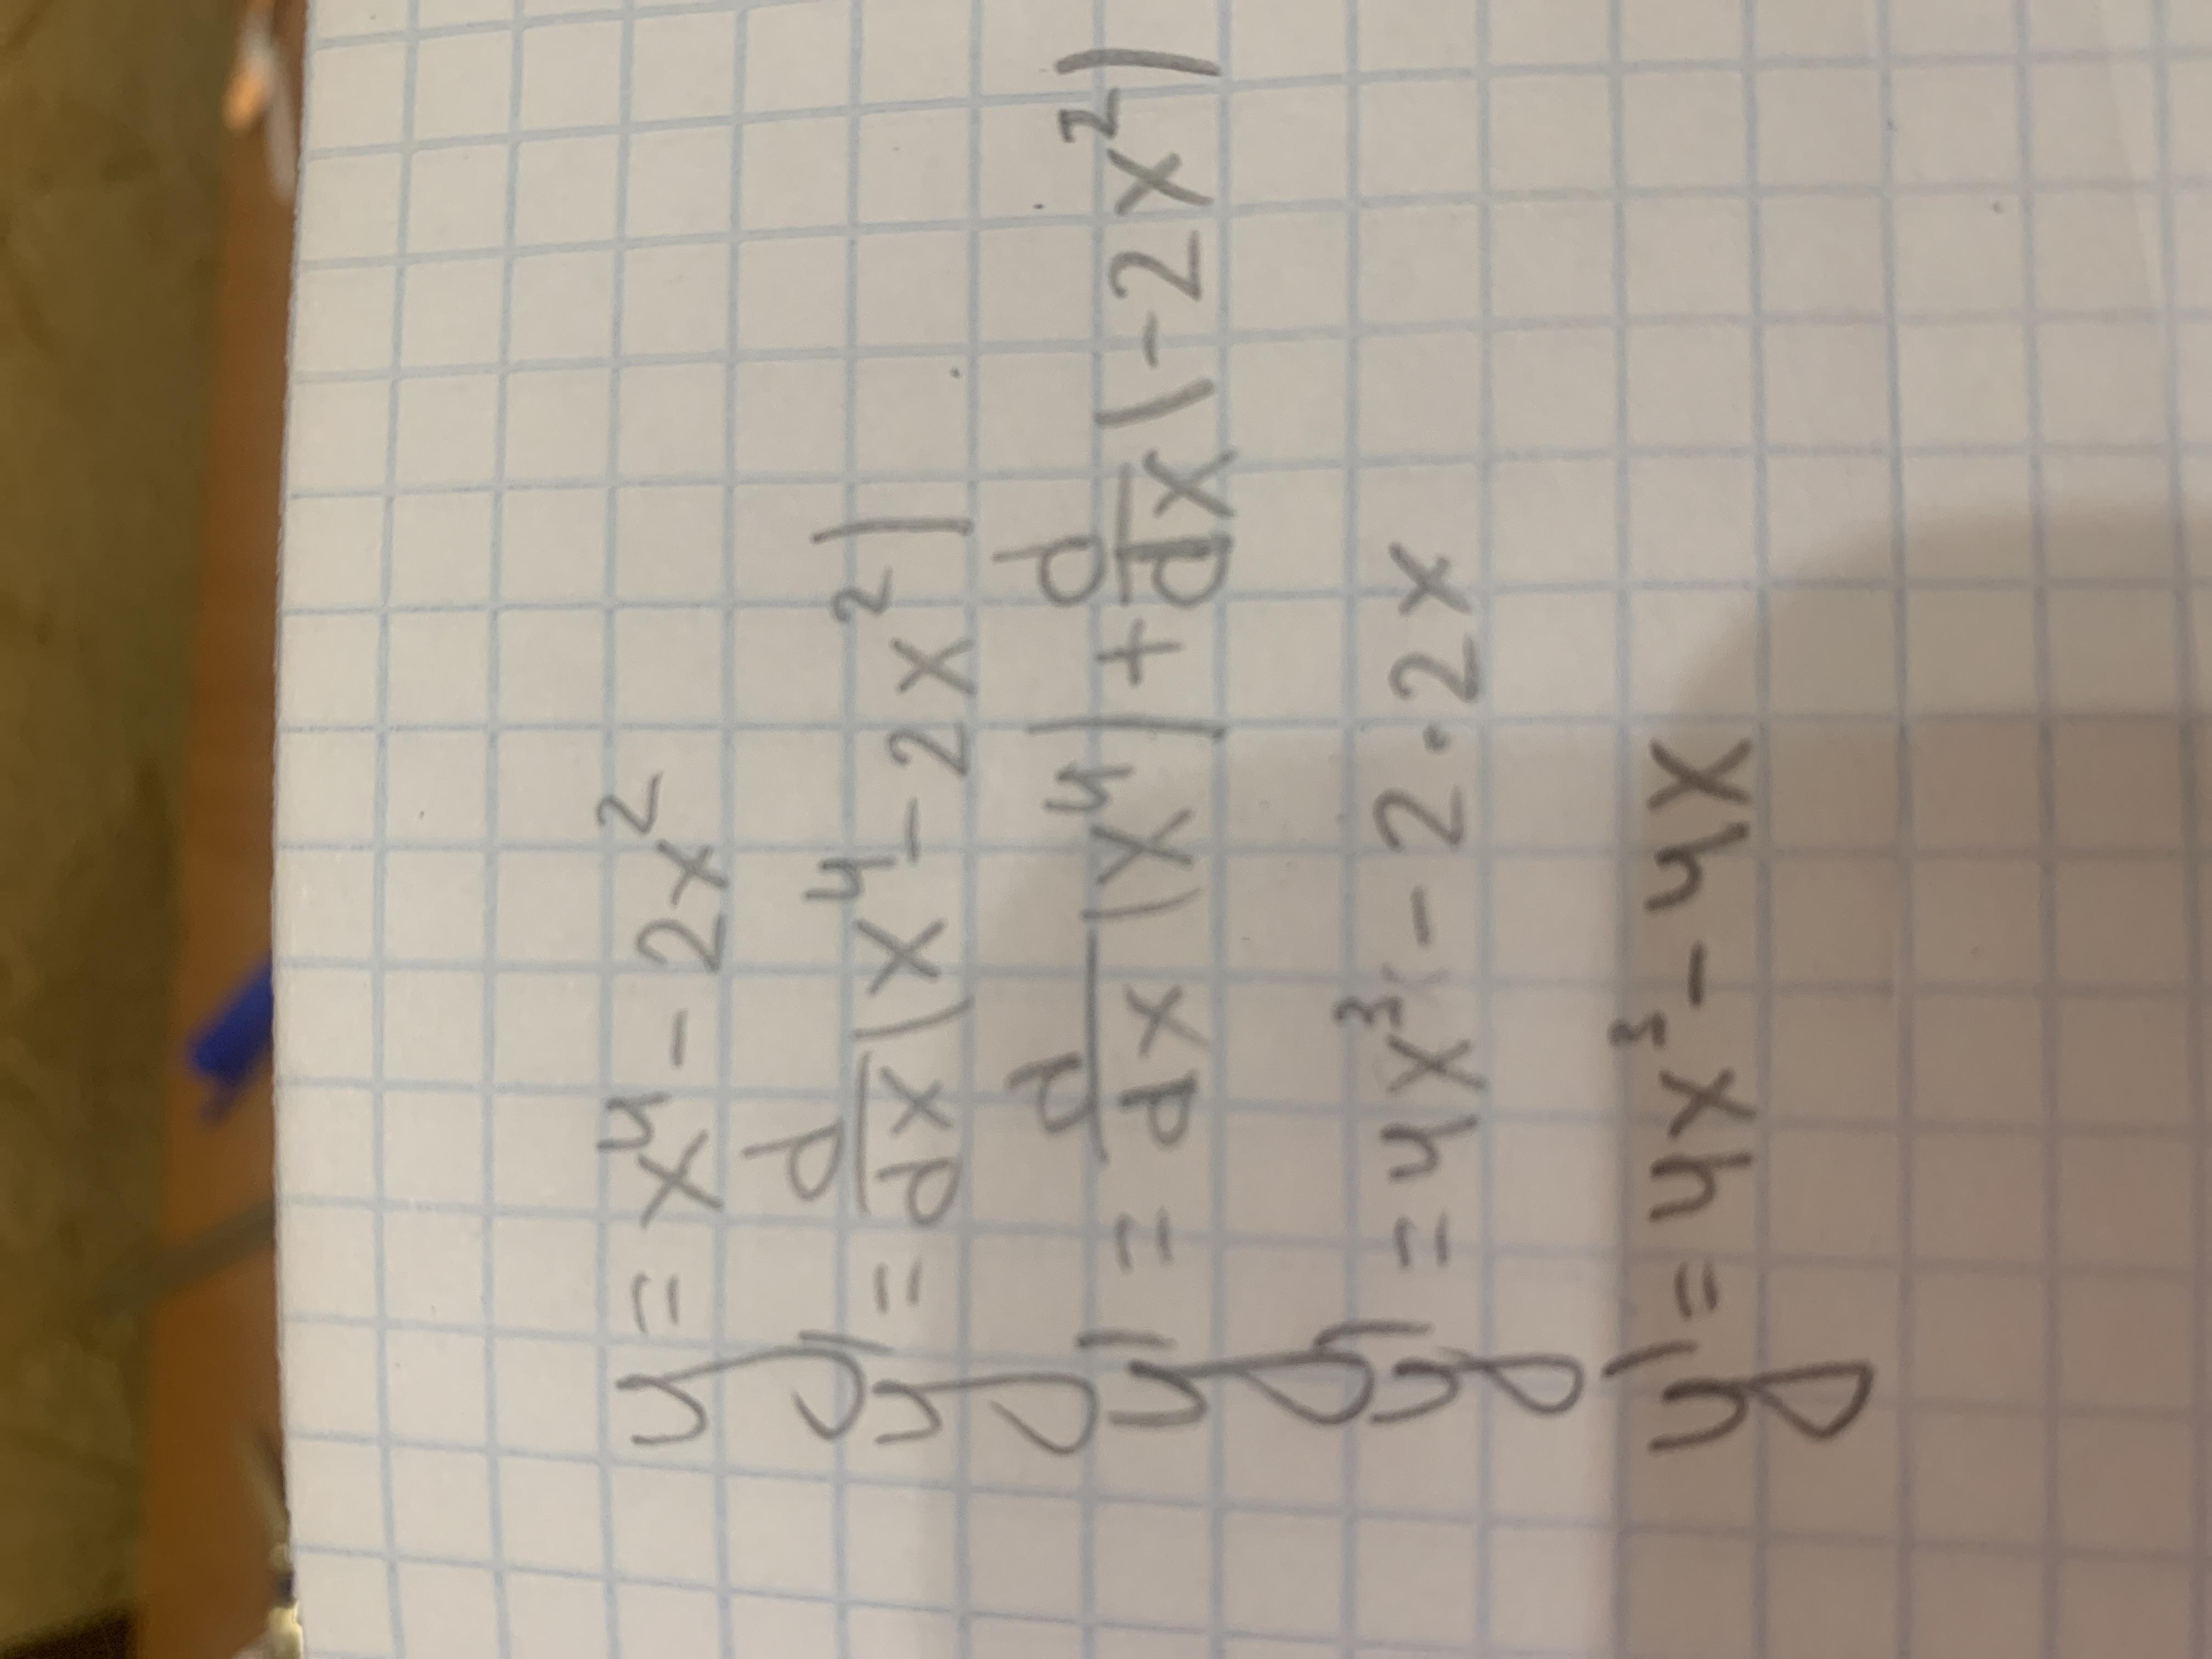 y = x⁴ - 2x²
y' = d/dx (x⁴ - 2x²)
y' = d/dx (x⁴) + d/dx (-2x²)
y' = 4x³ - 2 · 2x
y' = 4x³ - 4x